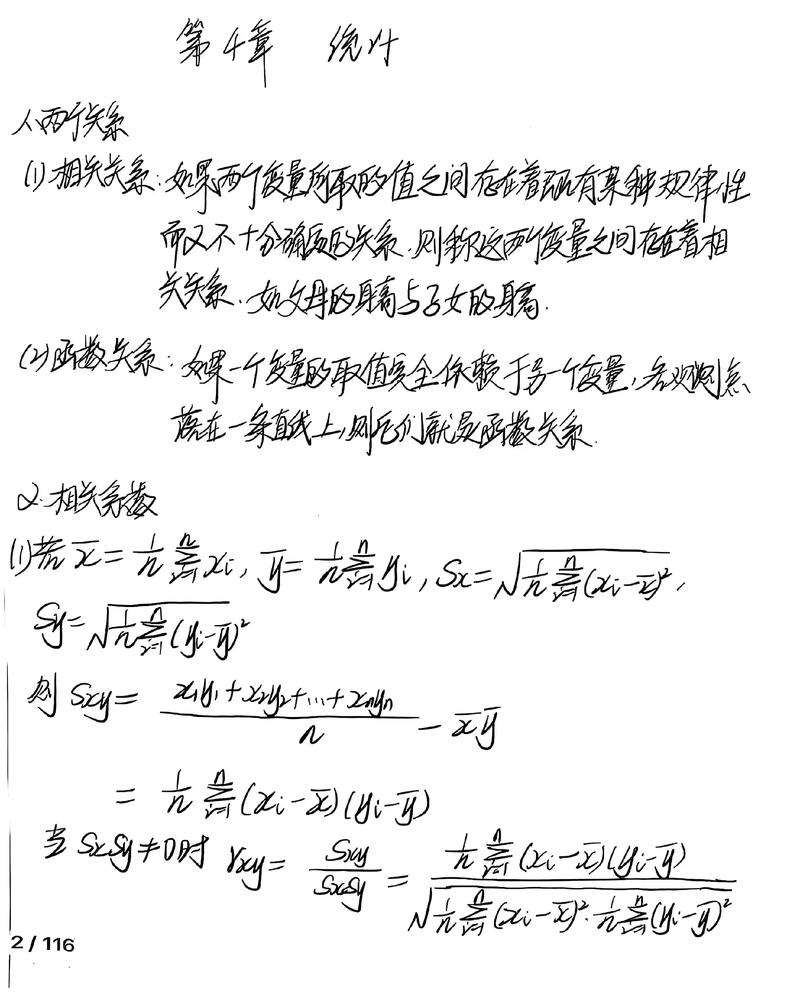 第4章 统计
1、两个关系
(1) 相关关系：如果两个变量所取的值之间存在着既有某种规律性
而又不十分确定的关系，则称这两个变量之间存在着相
关关系．如父母的身高与子女的身高．
(2) 函数关系：如果一个变量的取值完全依赖于另一个变量，各观测点
落在一条直线上，则它们就是函数关系．
2. 相关系数
(1) 若 x̄ = 1/n ∑ᵢ₌₁ⁿ xᵢ, ȳ = 1/n ∑ᵢ₌₁ⁿ yᵢ, Sx = √(1/n ∑ᵢ₌₁ⁿ (xᵢ-x̄)²),
Sy = √(1/n ∑ᵢ₌₁ⁿ (yᵢ-ȳ)²)
则 Sxy = (x₁y₁+x₂y₂+…+xₙyₙ)/n - x̄ȳ
= 1/n ∑ᵢ₌₁ⁿ (xᵢ-x̄)(yᵢ-ȳ)
当 SxSy≠0时 rxy = Sxy/(SxSy) = (1/n ∑ᵢ₌₁ⁿ (xᵢ-x̄)(yᵢ-ȳ))/√(1/n ∑ᵢ₌₁ⁿ (xᵢ-x̄)²·1/n ∑ᵢ₌₁ⁿ (yᵢ-ȳ)²)
2/116